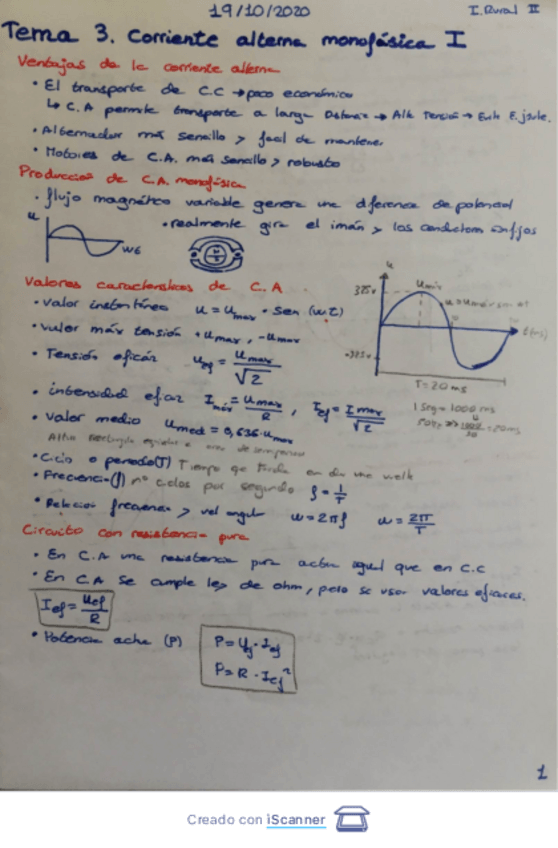 19/10/2020
I. Rural II
Tema 3. Corriente alterna monofásica I
Ventajas de la corriente alterna
• El transporte de C.C → poco económico
↳ C.A permite transporte a larga Distancia → Alta Tensión → Evita E. joule.
• Alternador más sencillo y facil de mantener
• Motores de C.A. más sencillo y robusto
Produccion de C.A. monofásica
• flujo magnético variable genera una diferencia de potencial
• realmente gira el imán y los conductores son fijos
u
wt
Valores característicos de C.A
• valor instantáneo u = umax · sen (wt)
• valor máx tensión +umax, -umax
• Tensión eficáz uef = umax/√2
• intensidad eficaz Imáx = umax/R , Ief = Imax/√2
• valor medio umed = 0,636·umax
u
325v
umáx
-325v
t(ms)
T=20ms
1 seg = 1000 ms
Altura rectangulo equivalente a area de semiperiodo
• Ciclo o periodo(T) Tiempo que tarda en dar una vuelta
• Frecuencia(f) nº ciclos por segundo f = 1/T
• Relacion frecuencia y vel angular w = 2πf w = 2π/T
Circuito con resistencia pura
• En C.A una resistencia pura actua igual que en C.C
• En C.A se cumple ley de ohm, pero se usan valores eficaces.
Ief = uef/R
• Potencia activa (P)
P = uef · Ief
P = R · Ief²
1
Creado con iScanner